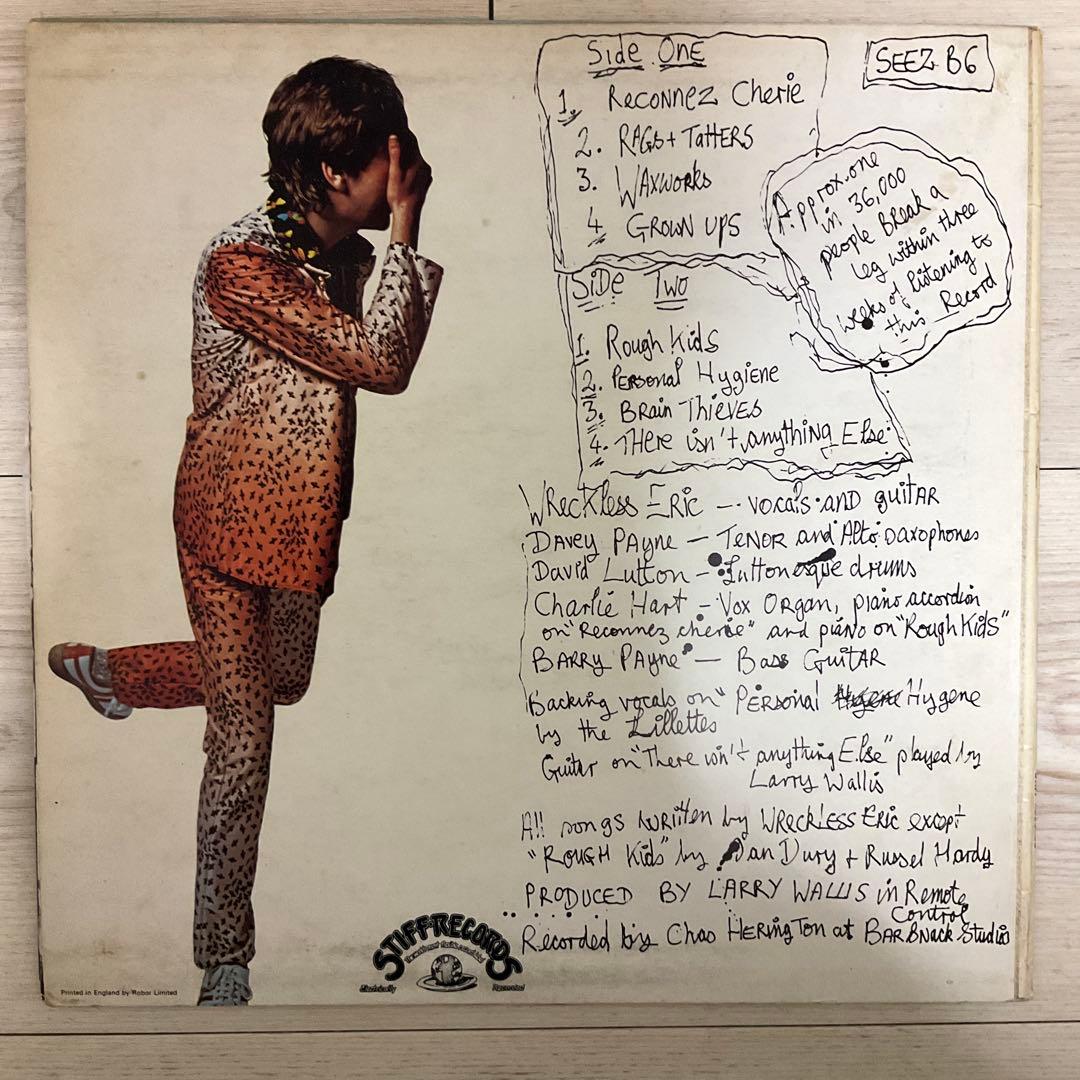 Side One
1. Reconnez Cherie
2. RAGs + TaTTERS
3. WAXWORKS
4 GROWN UPS
SEEZ B6
Approx. one
in 36,000
people Break a
leg within three
weeks of listening to
this Record
SiDe Two
1. Rough Kids
2. Personal Hygiene
3. Brain Thieves
4. THere isn't anything Else
Wreckless Eric — vocals and guitar
Davey Payne — Tenor and Alto saxophones
David Lutton — Luttonesque drums
Charlie Hart — Vox Organ, piano accordion
on "Reconnez cherie" and piano on "Rough Kids"
Barry Payne — Bass Guitar
Backing vocals on "Personal Hygene
by the Lillettes
Guitar on "There isn't anything Else" played by
Larry Wallis
All songs written by Wreckless Eric except
"Rough Kids" by Ian Dury + Russel Hardy
PRODUCED BY LARRY WALLIS in Remote
Control
Recorded by Chas Herington at Barbnack Studios
STIFF RECORDS
Electrically
Recorded
Printed in England by Robor Limited